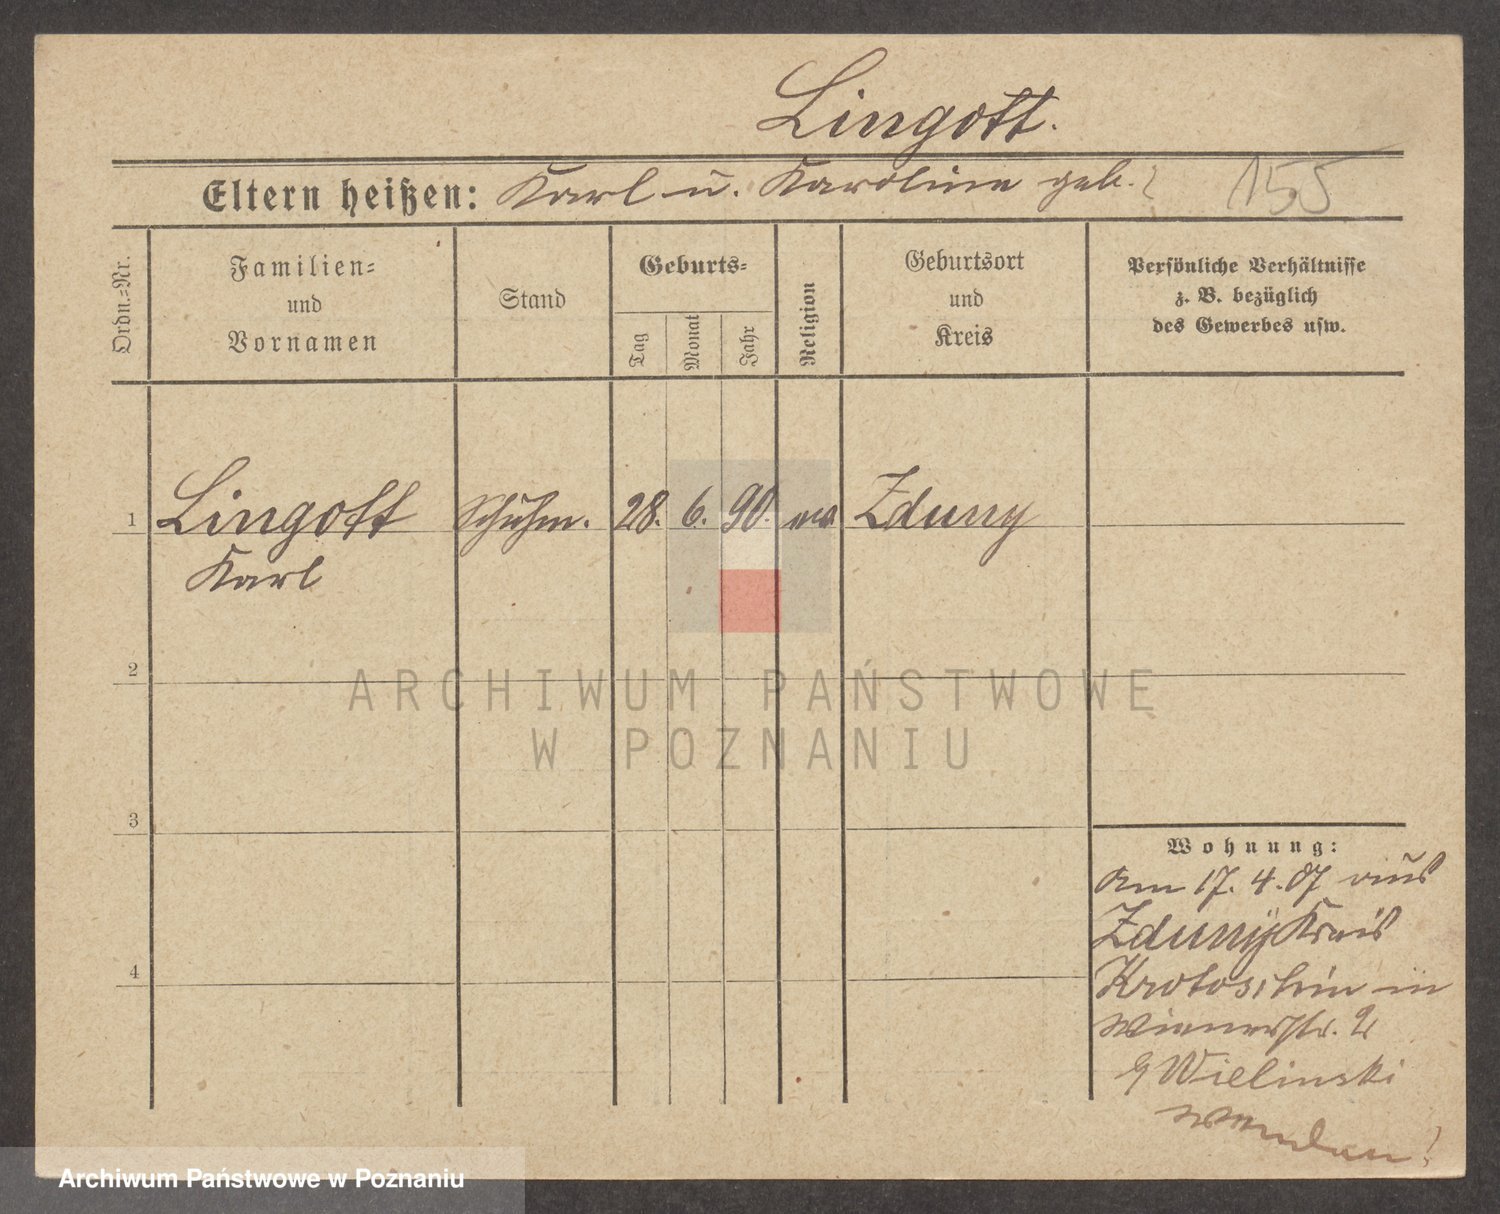 Lingott.
Eltern heißen: Karl u. Karoline geb. ? 155
Ordn.=Nr.
Familien=
und
Vornamen
Stand
Geburts=
Tag
Monat
Jahr
Religion
Geburtsort
und
Kreis
Persönliche Verhältnisse
z. B. bezüglich
des Gewerbes usw.
1 Lingott Schuhm. 28. 6. 90. ev. Zduny
Karl
2
3
4
Wohnung:
Am 17. 4. 07 aus
Zduny Kreis
Krotoschin in
Wienerstr. 2
b Wielinski
wenden!
ARCHIWUM PAŃSTWOWE
W POZNANIU
Archiwum Państwowe w Poznaniu